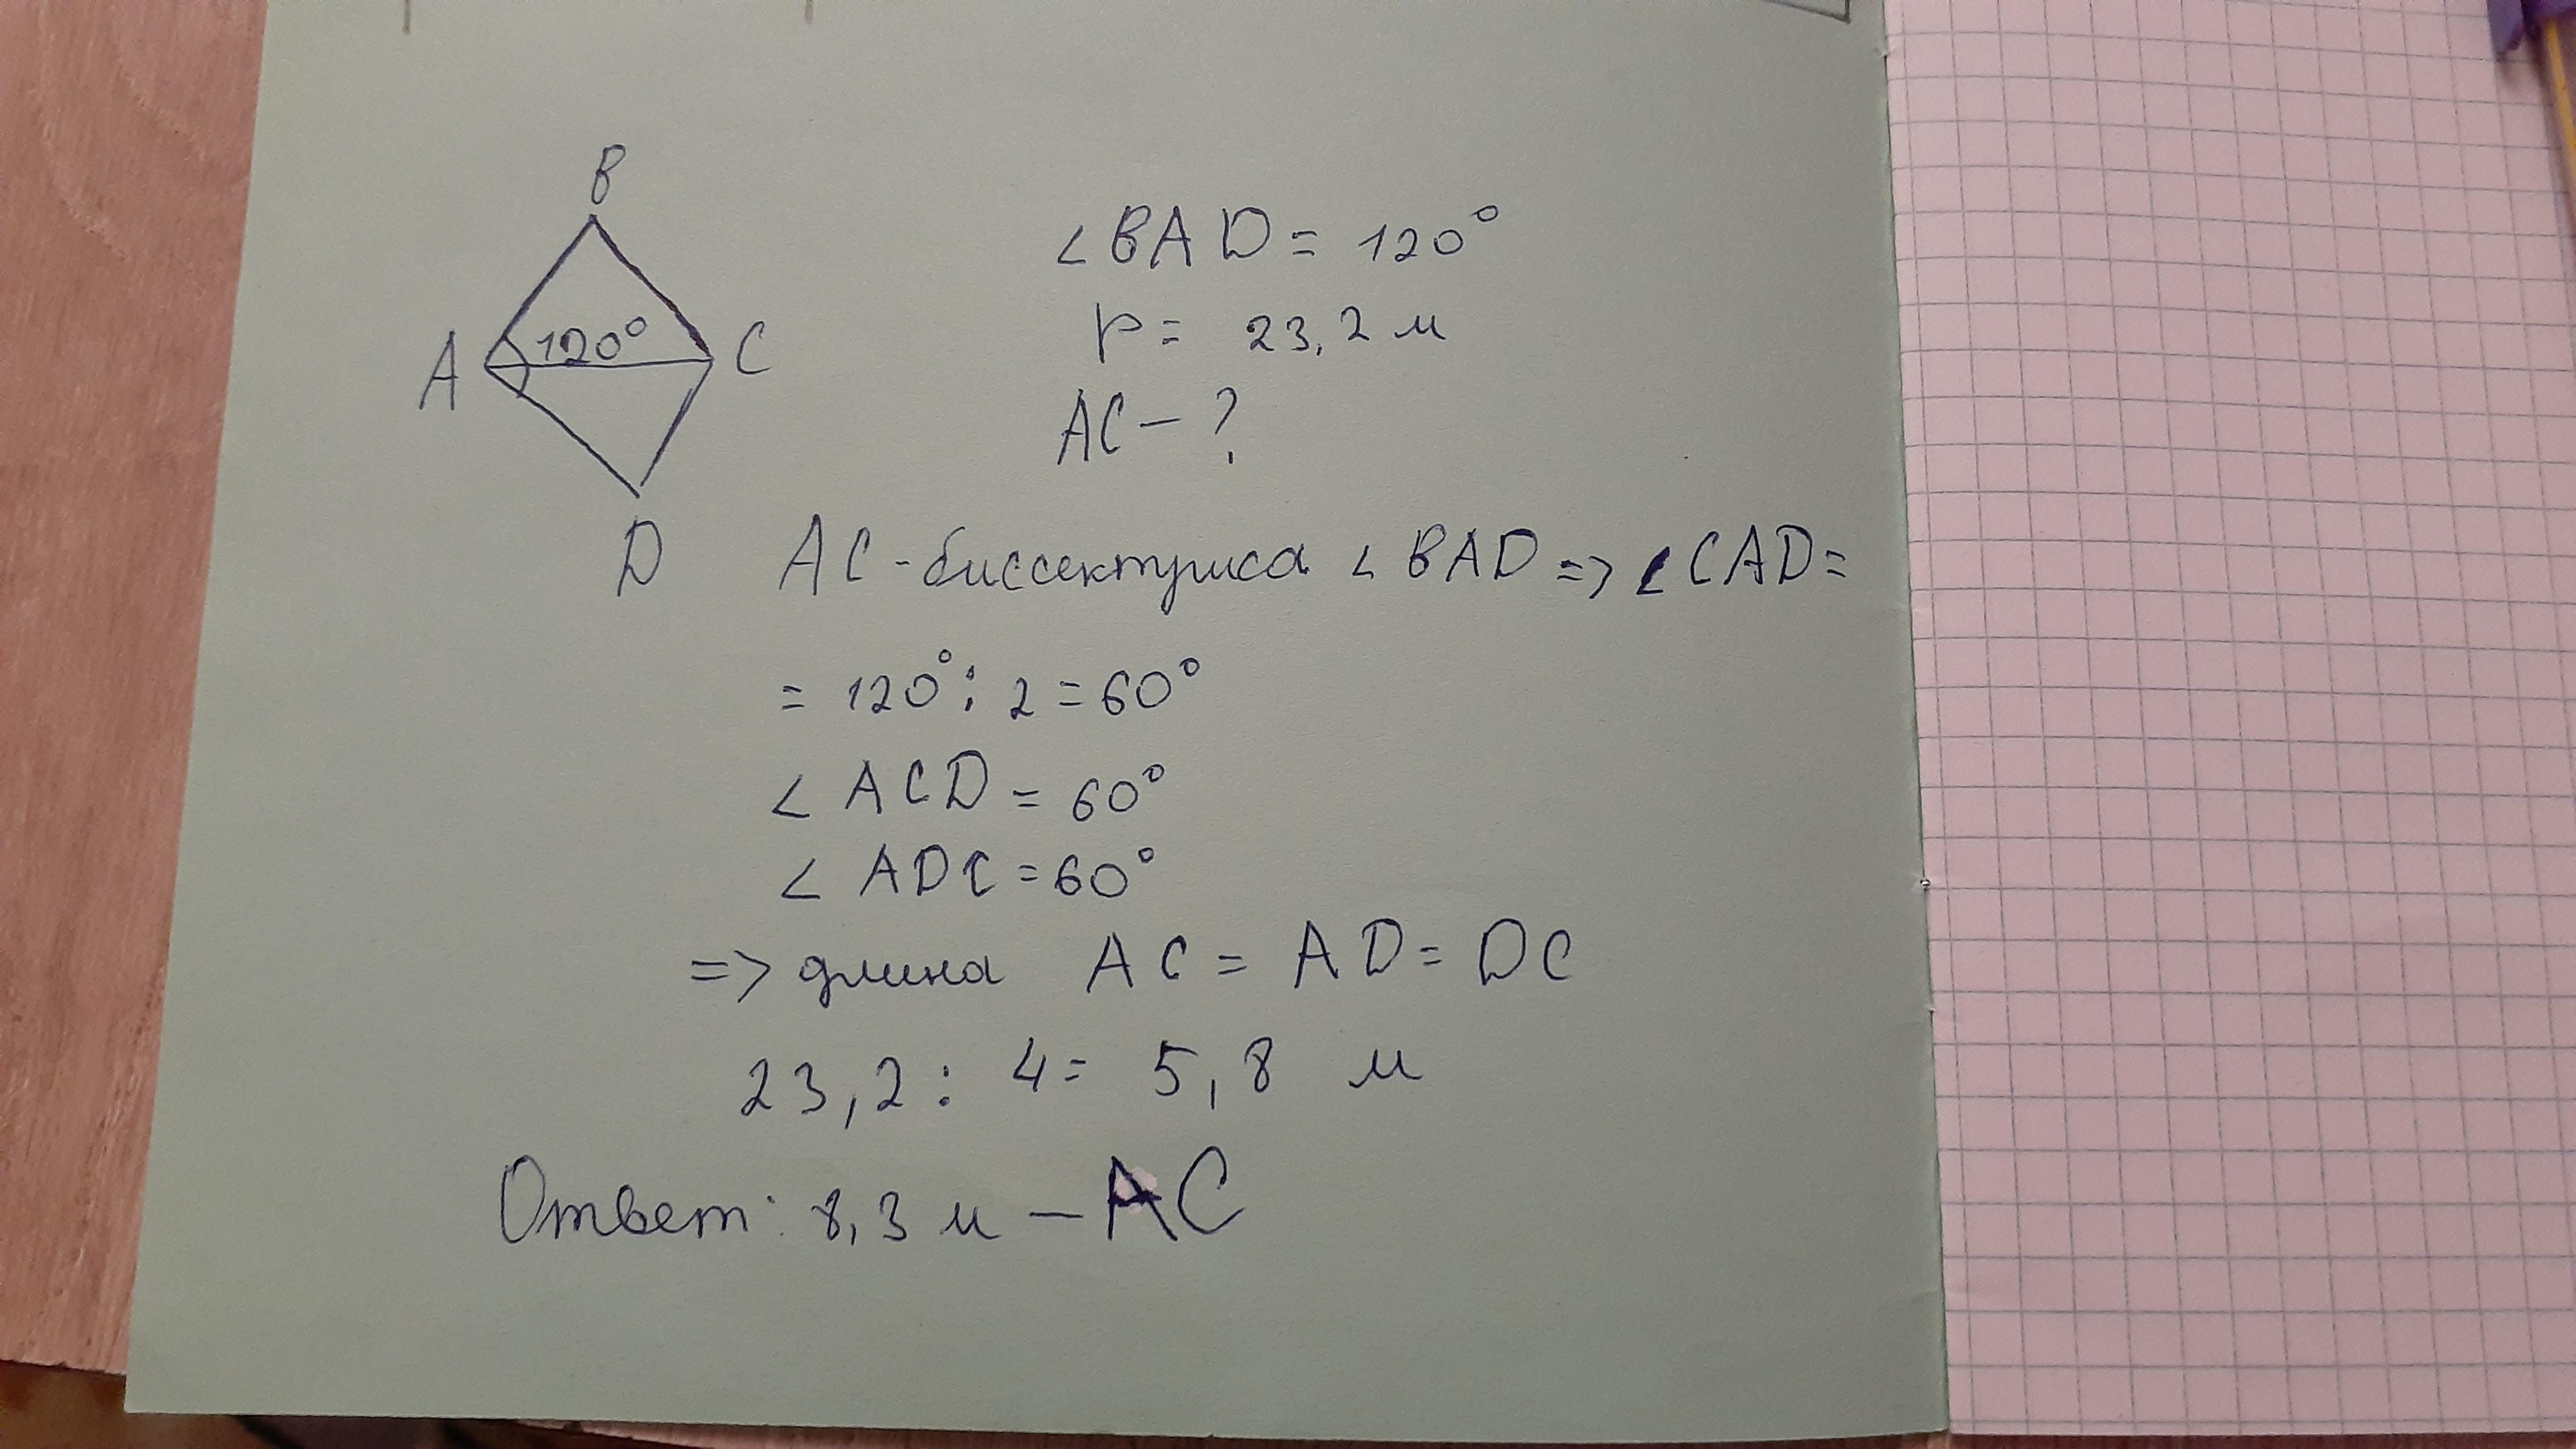 B
∠BAD = 120°
A 120° C
P = 23,2 м
AC - ?
D
AC - биссектриса ∠BAD => ∠CAD =
= 120° : 2 = 60°
∠ACD = 60°
∠ADC = 60°
=> длина AC = AD = DC
23,2 : 4 = 5,8 м
Ответ: 8,3 м - AC